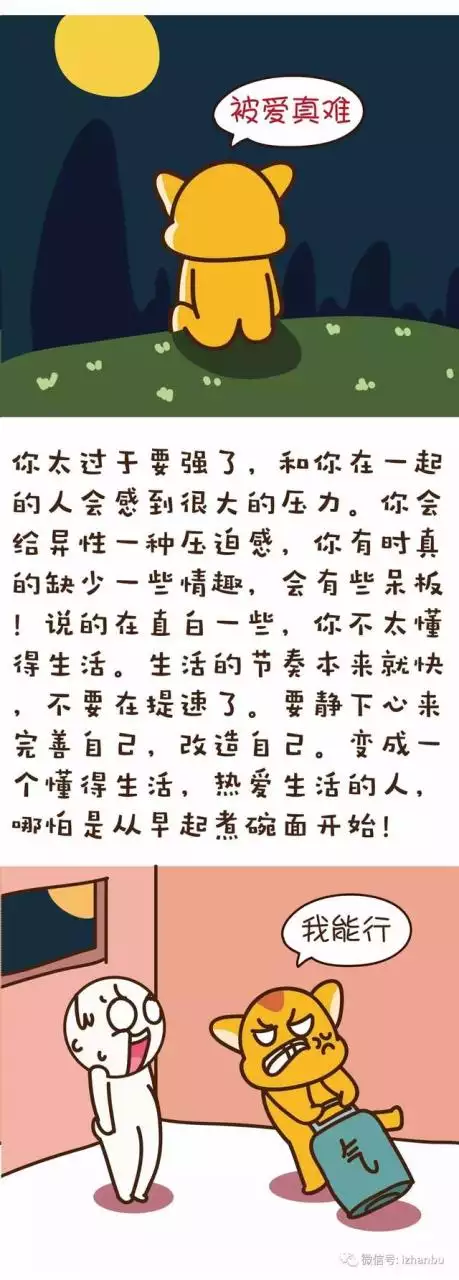 被爱真难
你太过于要强了，和你在一起
的人会感到很大的压力。你会
给异性一种压迫感，你有时真
的缺少一些情趣，会有些呆板
！说的在直白一些，你不太懂
得生活。生活的节奏本来就快
，不要在提速了。要静下心来
完善自己，改造自己。变成一
个懂得生活，热爱生活的人，
哪怕是从早起煮碗面开始！
我能行
气
微信号: izhanbu